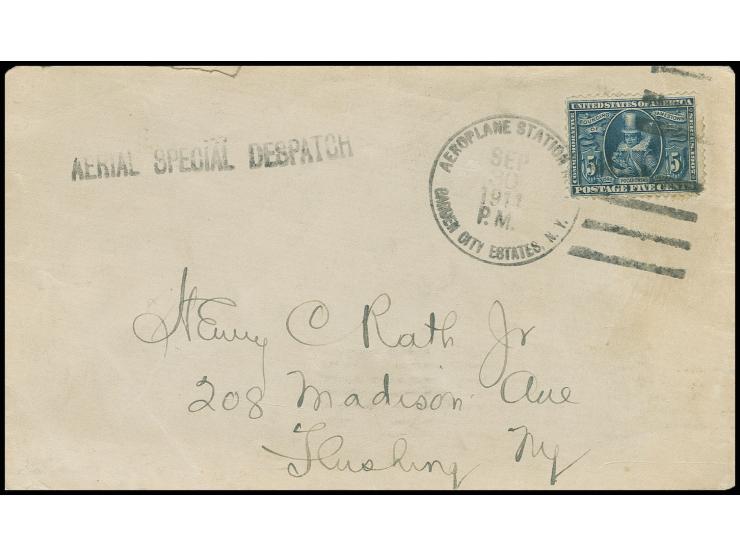 AERIAL SPECIAL DESPATCH
AEROPLANE STATION
SEP
30
1911
P.M.
GARDEN CITY ESTATES, N. Y.
UNITED STATES OF AMERICA
FOUNDING OF JAMESTOWN
5 5
POSTAGE FIVE CENTS
Henry C Rath Jr
208 Madison Ave
Flushing Ny